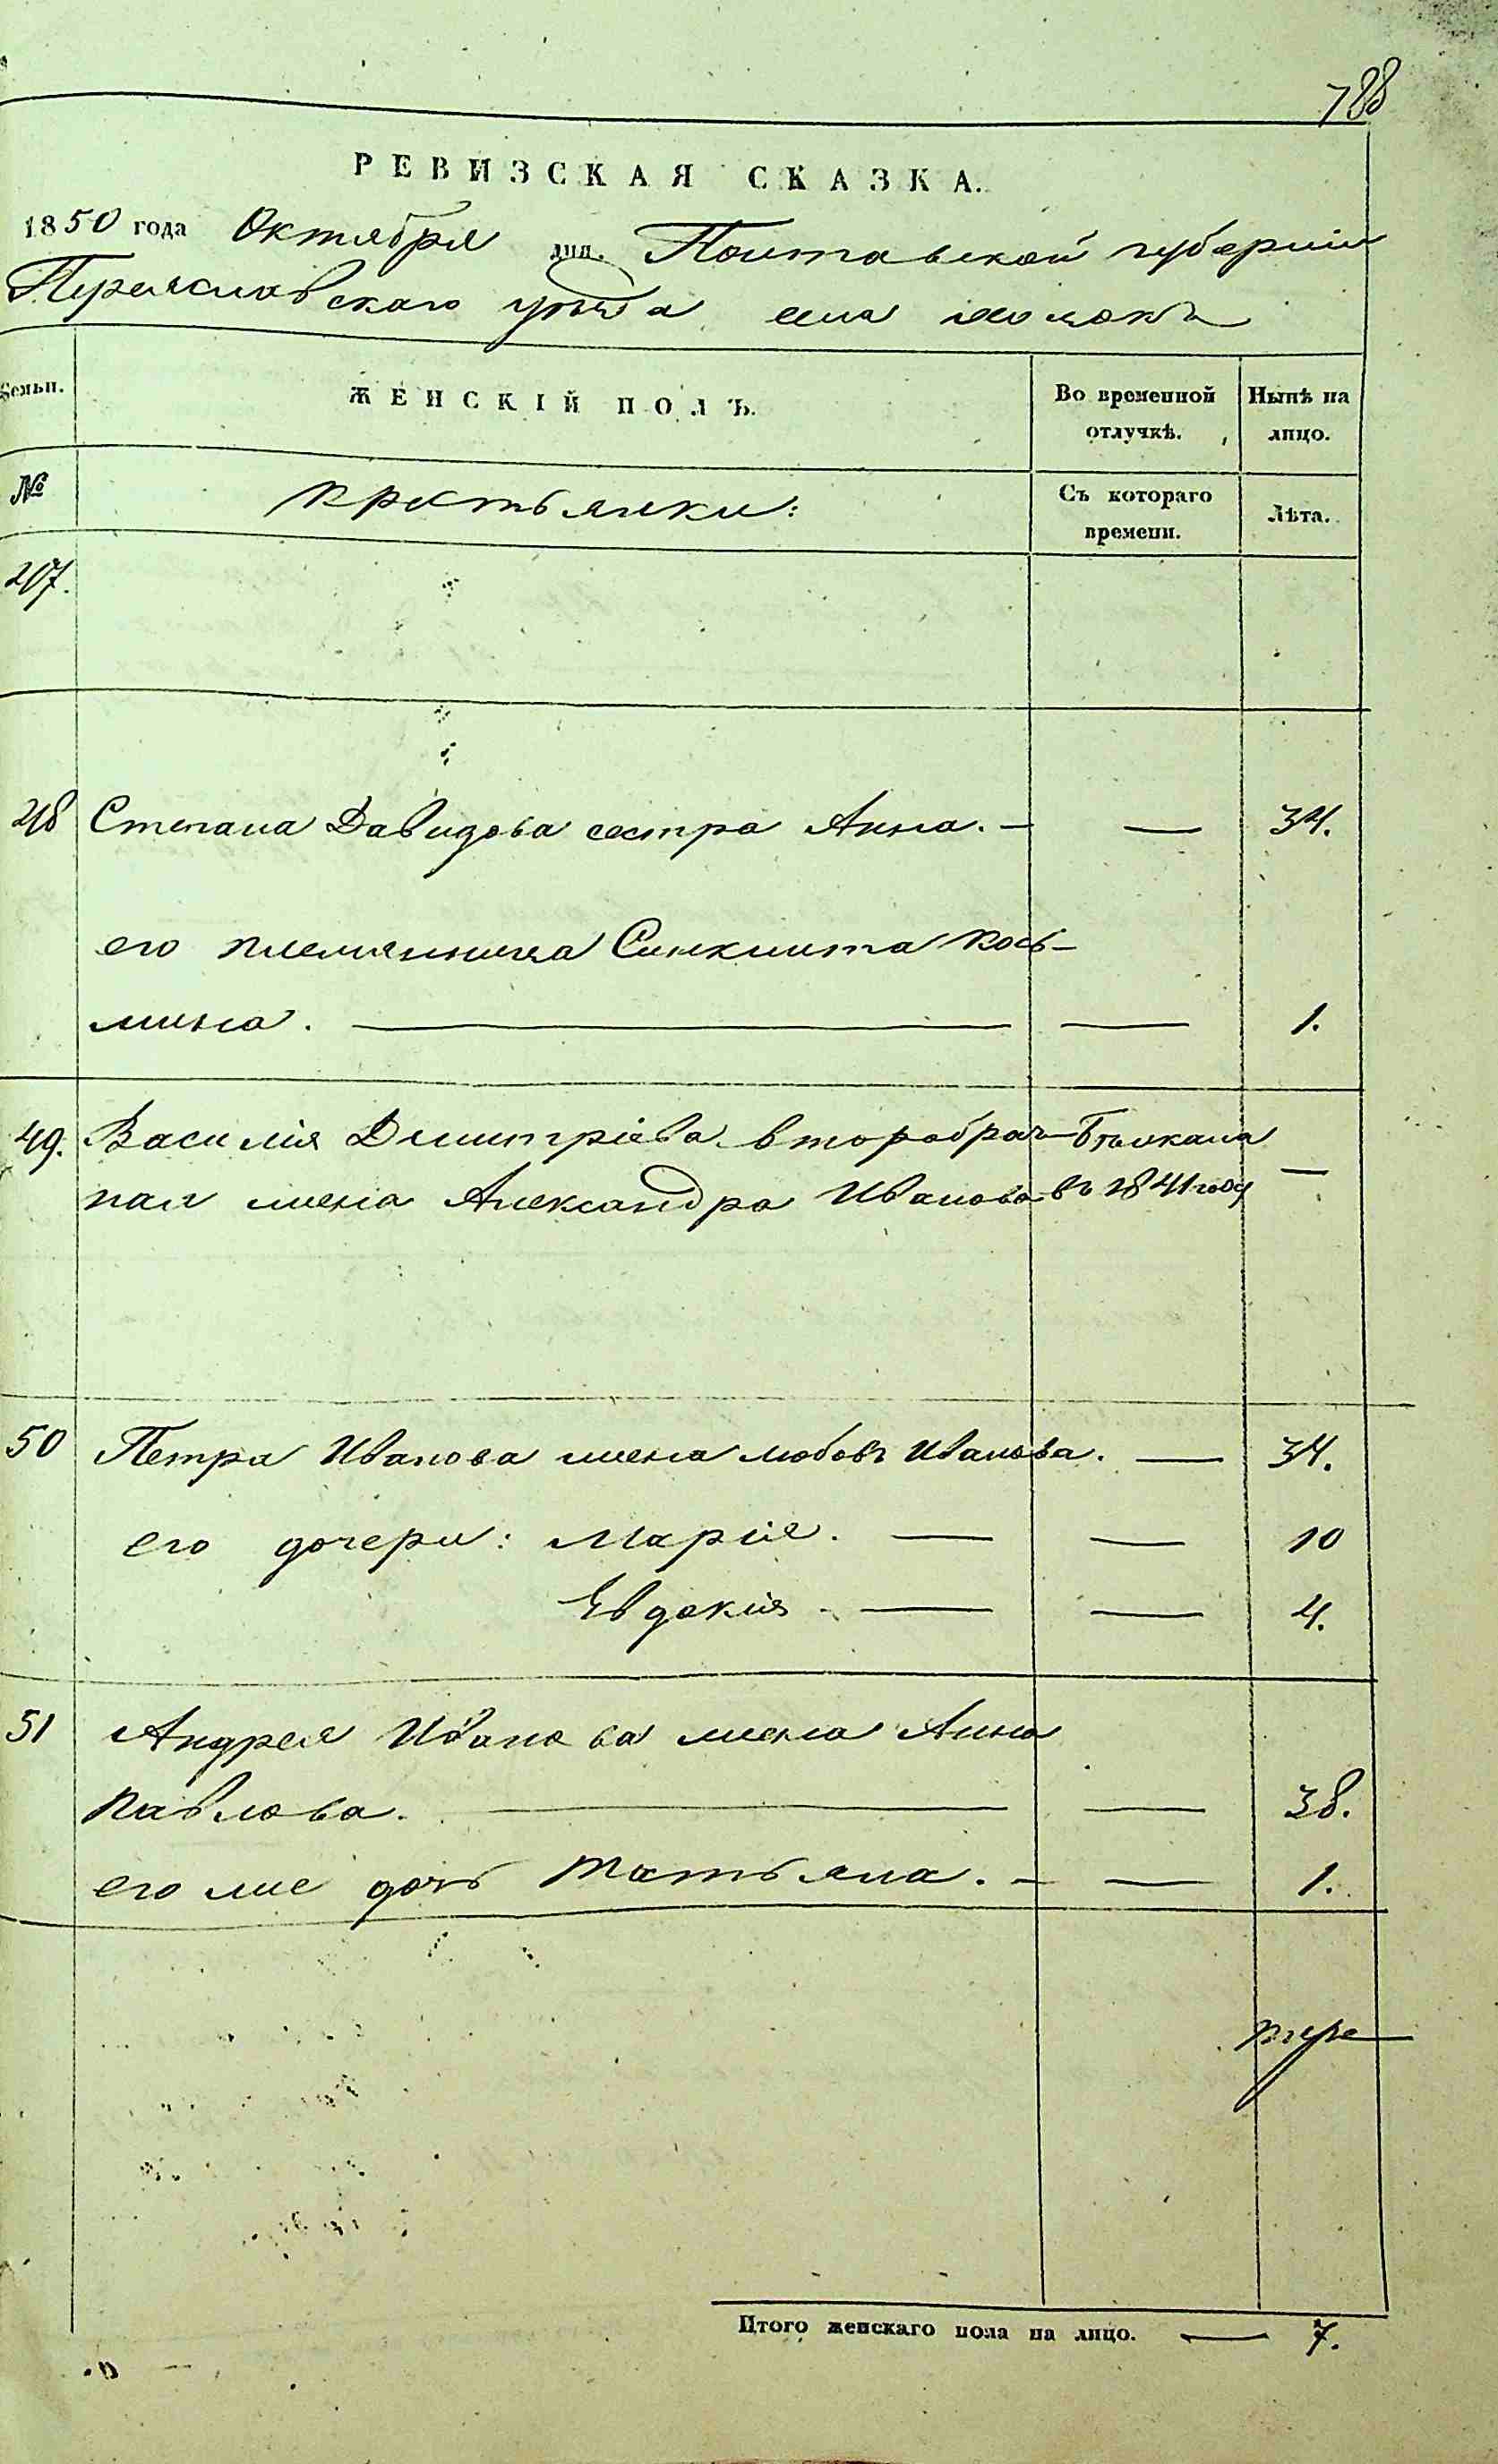 788
РЕВИЗСКАЯ СКАЗКА.
1850 года Октября дня. Полтавской губернии
Переяславскаго уѣзда села
Семьи. ЖЕНСКІЙ ПОЛЪ. Во временной отлучкѣ. Нынѣ на лицо.
№ крестьянки: Съ котораго времени. Лѣта.
207.
208 Степана Давидова сестра Анна. — — 34.
его племянница Синклита Кось-
мина. — — 1.
49. Василія Димитріева второбрач- Бѣжала
ная жена Александра Иванова въ 1841 году —
50 Петра Иванова жена Любовь Иванова. — 34.
его дочери: Марія. — — 10
Евдокія — — 4.
51 Андрея Иванова жена Анна
Павлова. — — 38.
его же дочь Татьяна. — — 1.
Итого женскаго пола на лицо. — 7.